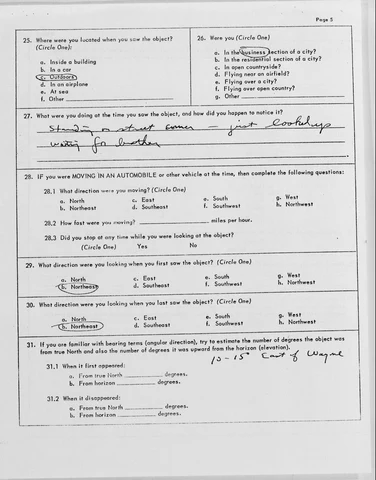 Page 5
25. Where were you located when you saw the object?
(Circle One):
a. Inside a building
b. In a car
c. Outdoors
d. In an airplane
e. At sea
f. Other
26. Were you (Circle One)
a. In the business section of a city?
b. In the residential section of a city?
c. In open countryside?
d. Flying near an airfield?
e. Flying over a city?
f. Flying over open country?
g. Other
27. What were you doing at the time you saw the object, and how did you happen to notice it?
Standing on street corner — just looked up
waiting for brother
28. IF you were MOVING IN AN AUTOMOBILE or other vehicle at the time, then complete the following questions:
28.1 What direction were you moving? (Circle One)
a. North c. East e. South g. West
b. Northeast d. Southeast f. Southwest h. Northwest
28.2 How fast were you moving? miles per hour.
28.3 Did you stop at any time while you were looking at the object?
(Circle One) Yes No
29. What direction were you looking when you first saw the object? (Circle One)
a. North c. East e. South g. West
b. Northeast d. Southeast f. Southwest h. Northwest
30. What direction were you looking when you last saw the object? (Circle One)
a. North c. East e. South g. West
b. Northeast d. Southeast f. Southwest h. Northwest
31. If you are familiar with bearing terms (angular direction), try to estimate the number of degrees the object was
from true North and also the number of degrees it was upward from the horizon (elevation).
10-15° East of Wayne
31.1 When it first appeared:
a. From true North degrees.
b. From horizon degrees.
31.2 When it disappeared:
a. From true North degrees.
b. From horizon degrees.